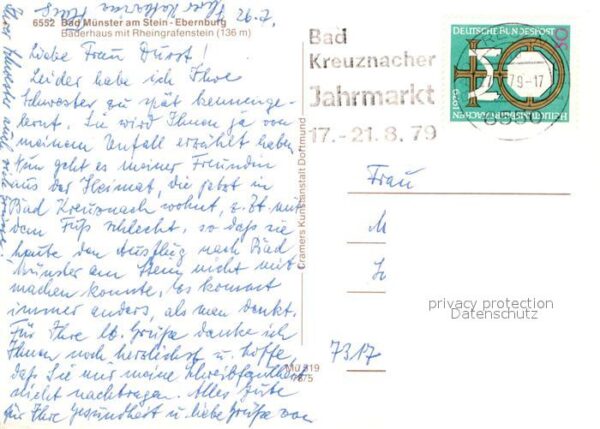 6552 Bad Münster am Stein - Ebernburg
Bäderhaus mit Rheingrafenstein (136 m)
26.7.
Liebe Frau Durst!
Leider habe ich Ihre
Schwester zu spät kennenge-
lernt. Sie wird Ihnen ja von
meinem Unfall erzählt haben
Nun geht es meiner Freundin
aus der Heimat, die jetzt in
Bad Kreuznach wohnt, z. Zt. mit
dem Fuß schlecht, so daß sie
heute den Ausflug nach Bad
Münster am Stein nicht mit
machen konnte. Es kommt
immer anders, als man denkt.
Für Ihre lb. Grüße danke ich
Ihnen noch herzlichst u. hoffe
daß Sie mir meine
nicht nachtragen. Alles Gute
für Ihre Gesundheit u. liebe Grüße von
Ihrer Schwester auch viele Grüsse
Cramers Kunstanstalt Dortmund
Mü 819
Bad
Kreuznacher
Jahrmarkt
17.-21.8.79
DEUTSCHE BUNDESPOST
50
79-17
Frau
M
7317
privacy protection
Datenschutz